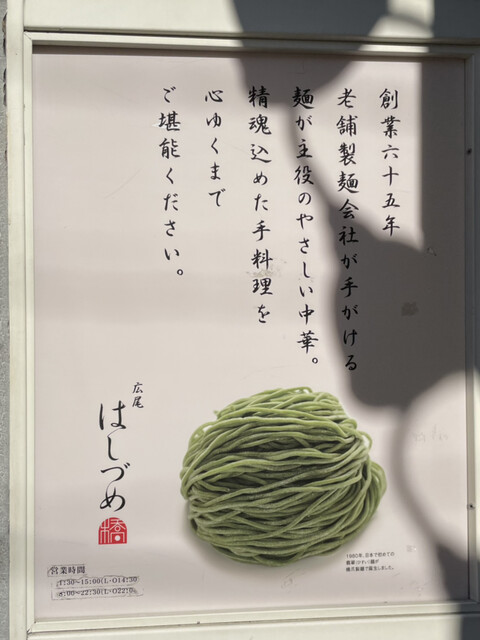 創業六十五年
老舗製麺会社が手がける
麺が主役のやさしい中華。
精魂込めた手料理を
心ゆくまで
ご堪能ください。
広尾
はしづめ
橋
営業時間
1:30~15:00(L·O14:30
8:00~22:30(L·O22:0